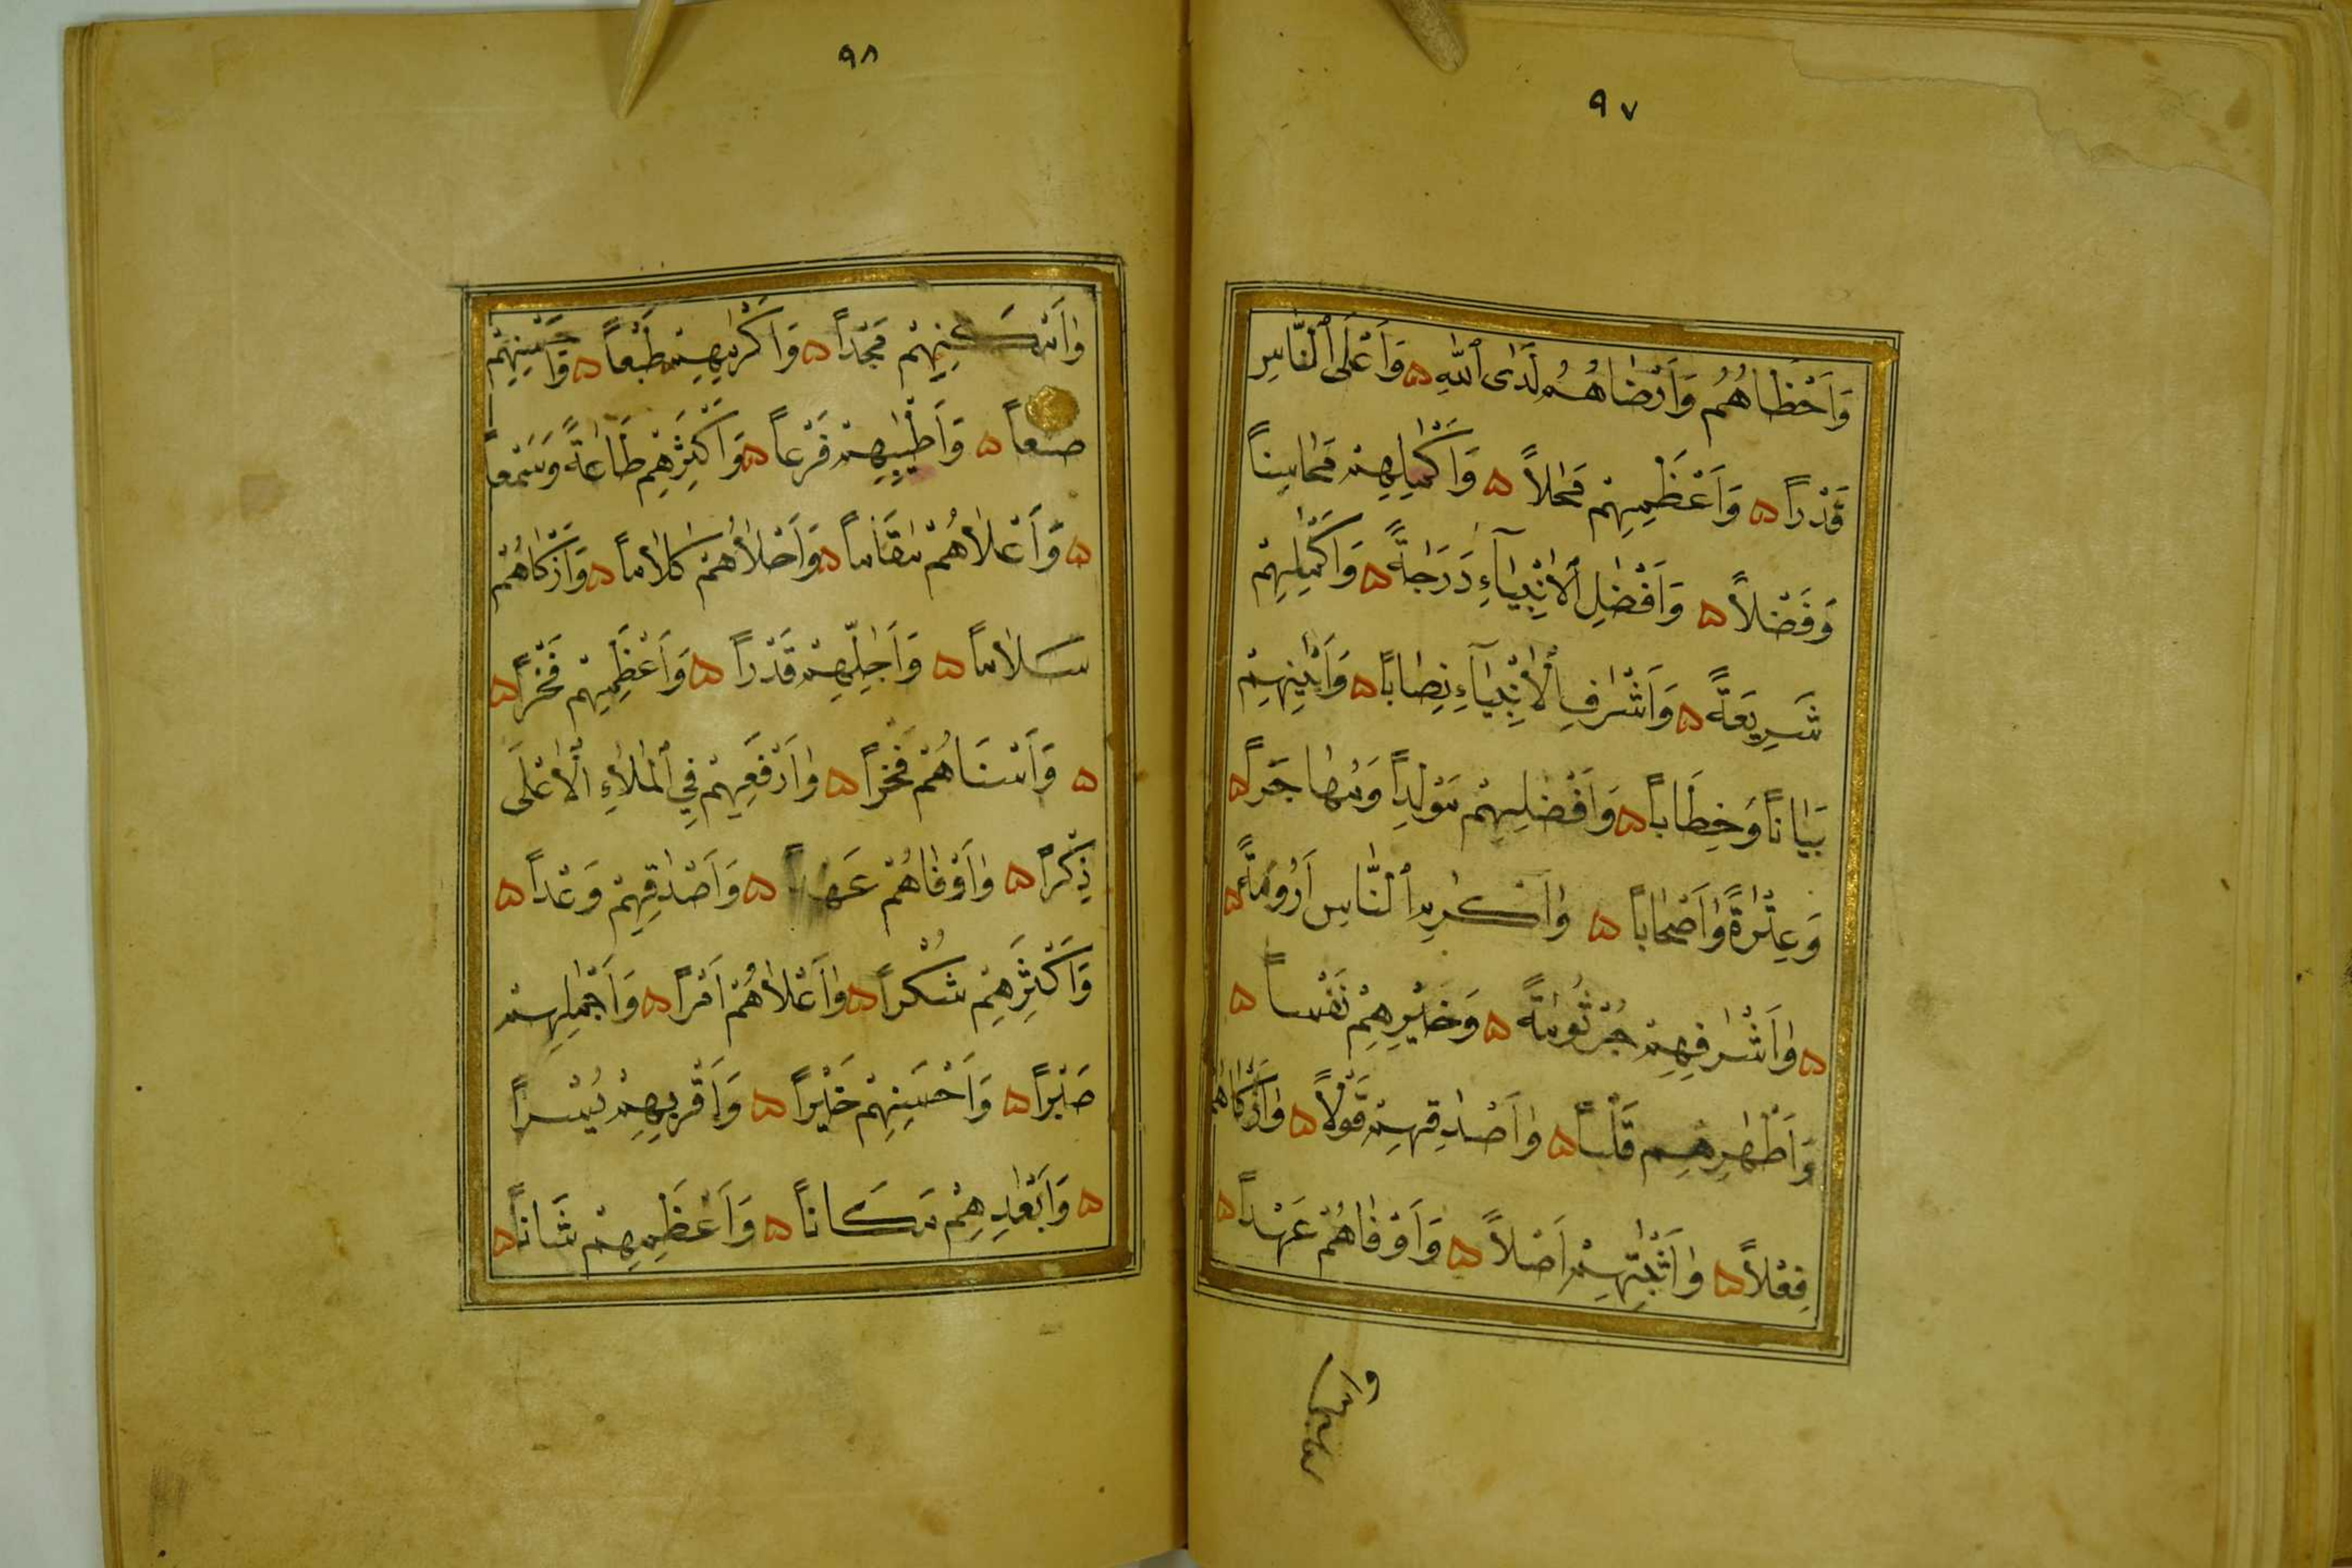 ٩٧
وَاَحْظَاهُمْ وَاَرْضَاهُمْ لَدَى اللّٰهِ ۵ وَاَعْلَى النَّاسِ
قَدْراً ۵ وَاَعْظَمِهِمْ مَحَلاً ۵ وَاَكْمَلِهِمْ مَحَاسِناً
وَفَضْلاً ۵ وَاَفْضَلِ الْاَنْبِيَاۤءِ دَرَجَةً ۵ وَاَكْمَلِهِمْ
شَرِيعَةً ۵ وَاَشْرَفِ الْاَنْبِيَاۤءِ نِصَاباً ۵ وَاَبْيَنِهِمْ
بَيَاناً وَخِطَاباً ۵ وَاَفْضَلِهِمْ مَوْلِداً وَمُهَاجَراً ۵
وَعِتْرَةً وَاَصْحَاباً ۵ وَاَكْرَمِ النَّاسِ اَرُومَةً ۵
۵ وَاَشْرَفِهِمْ جُرْثُومَةً ۵ وَخَيْرِهِمْ نَفْساً ۵
وَاَطْهَرِهِمْ قَلْباً ۵ وَاَصْدَقِهِمْ قَوْلاً ۵ وَاَزْكَاهُمْ
فِعْلاً ۵ وَاَثْبَتِهِمْ اَصْلاً ۵ وَاَوْفَاهُمْ عَهْداً ۵
٩٨
وَاَمْكَنِهِمْ مَجْداً ۵ وَاَكْرَمِهِمْ طَبْعاً ۵ وَاَحْسَنِهِمْ
صنعاً ۵ وَاَطْيَبِهِمْ فَرْعاً ۵ وَاَكْثَرِهِمْ طَاعَةً وَسَمْعاً
۵ وَاَعْلَاهُمْ مَقَاماً ۵ وَاَحْلَاهُمْ كَلَاماً ۵ وَاَزْكَاهُمْ
سَلَاماً ۵ وَاَجَلِّهِمْ قَدْراً ۵ وَاَعْظَمِهِمْ فَخْراً ۵
۵ وَاَسْنَاهُمْ فَخْراً ۵ وَاَرْفَعِهِمْ فِي الْمَلَاءِ الْاَعْلَى
ذِكْراً ۵ وَاَوْفَاهُمْ عَهْداً ۵ وَاَصْدَقِهِمْ وَعْداً ۵
وَاَكْثَرِهِمْ شُكْراً ۵ وَاَعْلَاهُمْ اَمْراً ۵ وَاَجْمَلِهِمْ
صَبْراً ۵ وَاَحْسَنِهِمْ خَيْراً ۵ وَاَقْرَبِهِمْ يُسْراً
۵ وَاَبْعَدِهِمْ مَكَاناً ۵ وَاَعْظَمِهِمْ شَاناً ۵